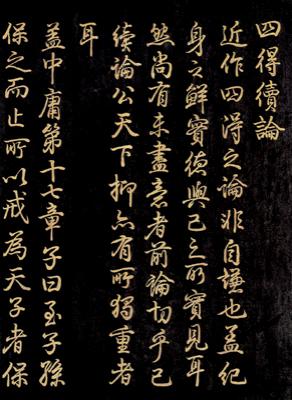 四得續論
近作四得之論非自謙也蓋紀
身之鮮實德與己之所實見耳
然尚有未盡意者前論切乎己
續論公天下抑亦有所獨重者
耳
蓋中庸第十七章子曰至子孫
保之而止所以戒為天子者保